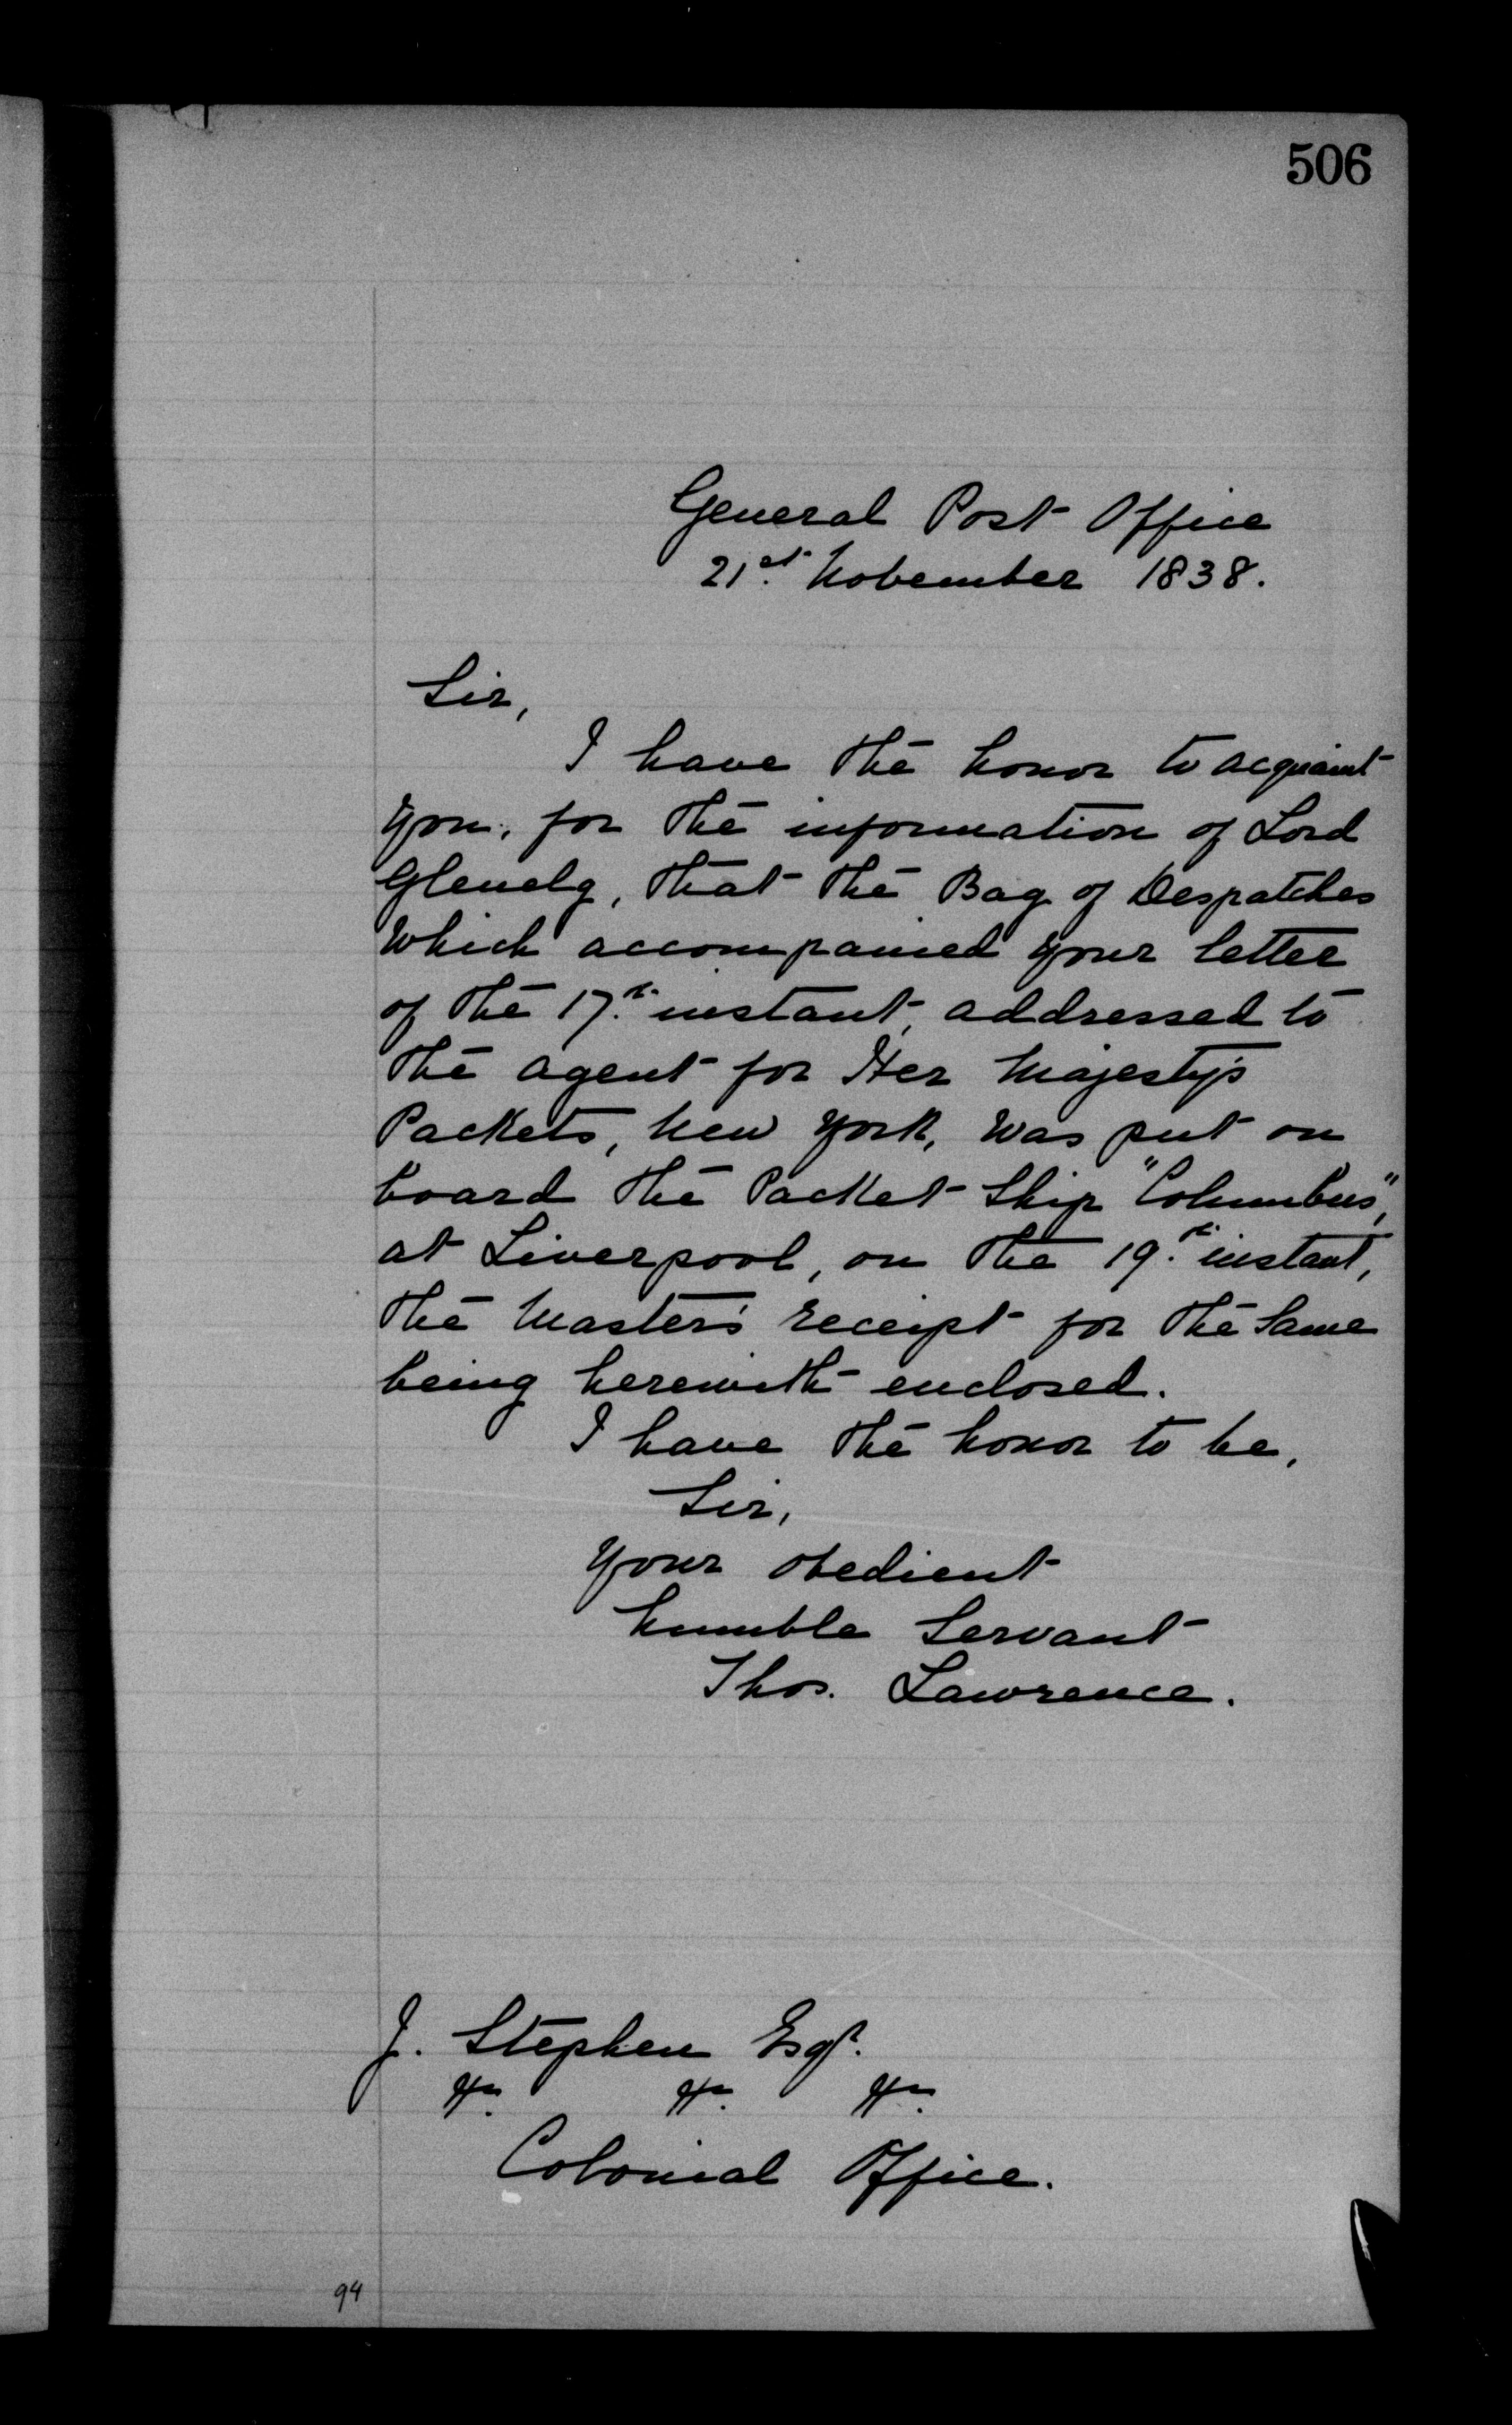 506
General Post Office
21st November 1838.
Sir,
I have the honor to acquaint
you, for the information of Lord
Glenelg, that the Bag of Despatches
which accompanied your letter
of the 17th instant, addressed to
the agent for Her Majesty's
Packets, New York, was put on
board the Packet Ship "Columbus",
at Liverpool, on the 19th instant,
the Master's receipt for the same
being herewith enclosed.
I have the honor to be,
Sir,
Your obedient
humble Servant
Thos. Lawrence.
J. Stephen Esqr.
Colonial Office.
94